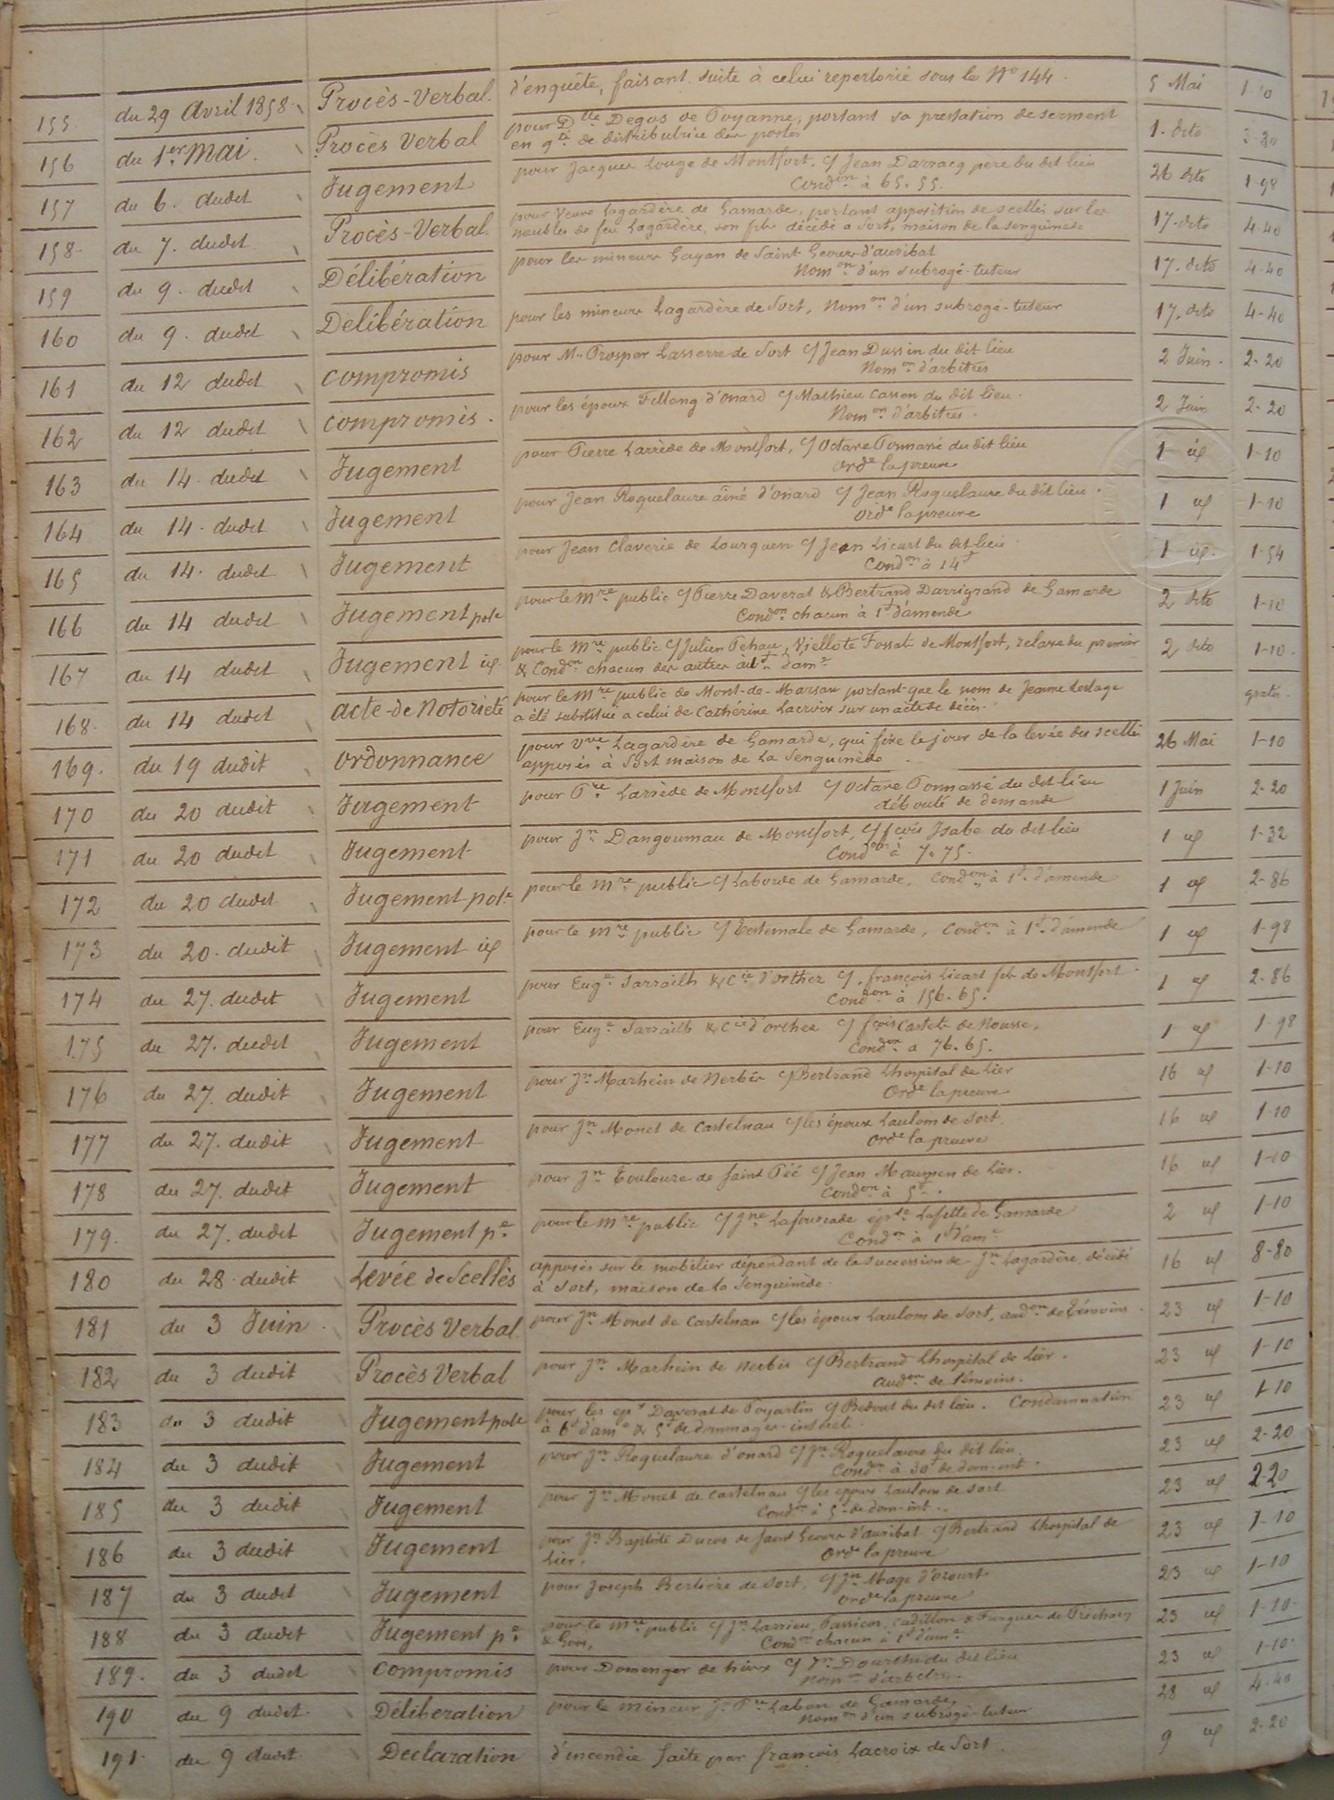 155. du 29 Avril 1858. Procès-Verbal. d'enquête, faisant suite à celui repertorié sous le N° 144. 5 Mai 1-10
156 du 1er Mai. Procès Verbal pour Dlle Degos de Poyanne, portant sa prestation de serment
en qté de distributrice des postes 1. dito 3-30
157 du 6. dudit Jugement pour Jacques Louge de Montfort, c/ Jean Darracq père du dit lieu
Condon à 65.55. 26 dito 1-98
158. du 7. dudit Procès-Verbal pour Veuve Lagardère de Gamarde, portant apposition de scellés sur les
meubles de feu Lagardère, son fils décédé a Sort, maison de la Senguinède 17. dito 4-40
159 du 9. dudit Délibération pour les mineurs Gayan de Saint Geours d'auribat
Nomon d'un subrogé-tuteur 17. dito 4-40
160 du 9. dudit Délibération pour les mineurs Lagardère de Sort, Nomon d'un subrogé-tuteur 17. dito 4-40
161 du 12 dudit Compromis pour Mr Prosper Lasserre de Sort c/ Jean Dussin du dit lieu
Nomon d'arbitres 2 Juin. 2-20
162 du 12 dudit Compromis. pour les époux d'onard c/ Mathieu Casson du dit lieu.
Nomon d'arbitres. 2 Juin 2-20
163 du 14. dudit Jugement pour Pierre Larrède de Montfort, c/ Octave Ponnarié du dit lieu
Orde la preuve 1 id 1-10
164 du 14. dudit Jugement pour Jean Roquelaure aîné d'onard c/ Jean Roquelaure du dit lieu.
Orde la preuve 1 id 1-10
165 du 14. dudit Jugement pour Jean Claverie de Lourquen c/ Jean Licart du dit lieu
Condon à 14f 1 id. 1-54
166 du 14 dudit Jugement pole pour le Mre public c/ Pierre Daverat & Bertrand Darrigrand de Gamarde
Condon chacun à 1f d'amende 2 dito 1-10
167 du 14 dudit Jugement id pour le Mre public c/ Julien Péhau, Viellote Fossat de Montfort, relaxe du premier
& Condon chacun des autres à 1f d'ame 2 dito 1-10.
168. du 14 dudit Acte-de Notorieté pour le Mre public de Mont-de-Marsan portant que le nom de Jeanne Lestage
a été substitué a celui de Cathérine Lacroix sur un acte de décès. gratis.
169. du 19 dudit Ordonnance pour Vve Lagardère de Gamarde, qui fixe le jour de la levée des scellés
apposés à Sort maison de La Senguinède 26 Mai 1-10
170 du 20 dudit Jugement pour Pre Larrède de Montfort c/ Octave Ponnarié du dit lieu
débouté de demande 1 Juin 2-20
171 du 20 dudit Jugement pour Jn Dangoumau de Montfort, c/ fçois Isabe du dit lieu
Condon à 7.75. 1 id 1-32
172 du 20 dudit Jugement pole pour le Mre public c/ Laborde de Gamarde, Condon à 1f d'amende 1 id 2-86
173 du 20. dudit Jugement id pour le Mre public c/ Testemale de Gamarde, Condon à 1f d'amende 1 id 1-98
174 du 27. dudit Jugement pour Euge Sarrailh & Cie d'orthez c/ françois Licart fils de Montfort.
Condon à 156.65. 1 id 2-86
175 du 27. dudit Jugement pour Euge Sarrailh & Cie d'orthez c/ fçois Castets de Nousse,
Condon a 76.65. 1 id 1-98
176 du 27. dudit Jugement pour Jn Marhein de Nerbis c/ Bertrand Lhospital de Lier
Orde la preuve 16 id 1-10
177 du 27. dudit Jugement pour Jn Monet de Castelnau c/ les époux Laulom de Sort.
Orde la preuve 16 id 1-10
178 du 27. dudit Jugement pour Jn Toulouse de Saint Pée c/ Jean Maumen de Lier.
Condon à 5f. 16 id 1-10
179. du 27. dudit Jugement pe pour le Mre public c/ Jne Lafourcade épse Lafitte de Gamarde
Condon à 1f d'ame 2 id 1-10
180 du 28. dudit Levée de Scellés apposés sur le mobilier dépendant de la succession de Jn Lagardère, décédé
à Sort, maison de la Senguinède. 16 id 8-80
181 du 3 Juin. Procès Verbal pour Jn Monet de Castelnau c/ les époux Laulom de Sort, audon de témoins. 23 id 1-10
182 du 3 dudit Procès Verbal pour Jn Marhein de Nerbis c/ Bertrand Lhospital de Lier.
Audon de témoins. 23 id 1-10
183 du 3 dudit Jugement pole pour les epx Daverat de Poyartin c/ Bedout du dit lieu. Condamnation
à 6f d'ame & 5f de dommages-intérêts 23 id 1-10
184 du 3 dudit Jugement pour Jn Roquelaure d'onard c/ Jn Roquelaure du dit lieu
Condon à 30f de dom-int. 23 id 2-20
185 du 3 dudit Jugement pour Jn Monet de Castelnau c/ les époux Laulom de Sort
Condon à 5f de dom-int. 23 id 2-20
186 du 3 dudit Jugement pour Jn Baptiste Ducos de Saint Geours d'auribat c/ Bertrand Lhospital de
Lier. Orde la preuve 23 id 1-10
187 du 3 dudit Jugement pour Joseph Berlière de Sort, c/ Jn d'ozourt
Orde la preuve 23 id 1-10
188 du 3 dudit Jugement pe pour le Mre public c/ Jn Larrieu, Parricon, Cadillon & Farguer de Préchacq
& Gors, Condon chacun à 1f d'ame 23 id 1-10.
189. du 3 dudit Compromis pour Domenger de hinx c/ Jn du dit lieu
Nomon d'arbitres. 23 id 1-10.
190 du 9 dudit. Délibération pour le mineur Jn Pre Laban de Gamarde,
Nomon d'un subrogé-tuteur 28 id 4-40
191. du 9 dudit Declaration d'incendie faite par françois Lacroix de Sort. 9 id 2-20